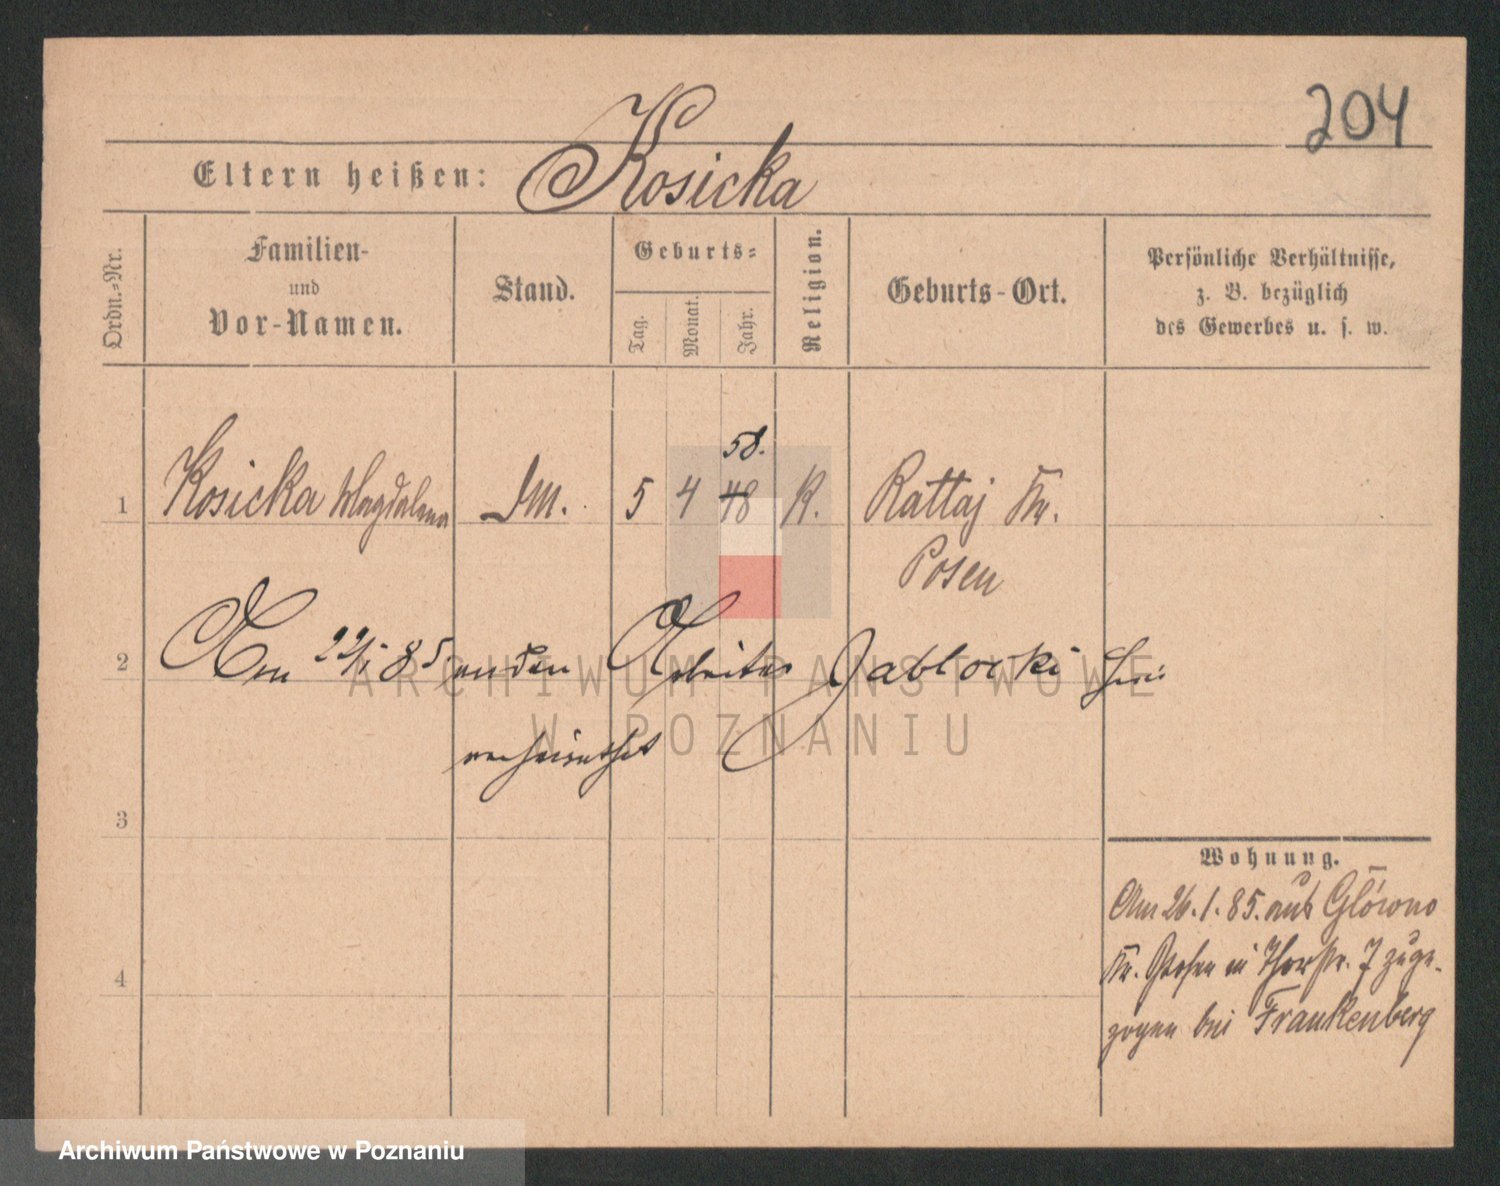 204
Eltern heißen: Kosicka
Ordn.=Nr.
Familien-
und
Vor-Namen.
Stand.
Geburts=
Tag.
Monat.
Jahr.
Religion.
Geburts-Ort.
Persönliche Verhältnisse,
z. B. bezüglich
des Gewerbes u. s. w.
58.
1 Kosicka Magdalena 5 4 48 K. Rattaj Kr.
Posen
2 Am 22/1 85 an den Arbeiter Jablocki hier
verheirathet
3
4
Wohnung.
Am 26.1.85. aus Glówno
Kr. Posen in Thorstr. 7 zuge-
zogen bei Frankenberg
ARCHIWUM PAŃSTWOWE
W POZNANIU
Archiwum Państwowe w Poznaniu